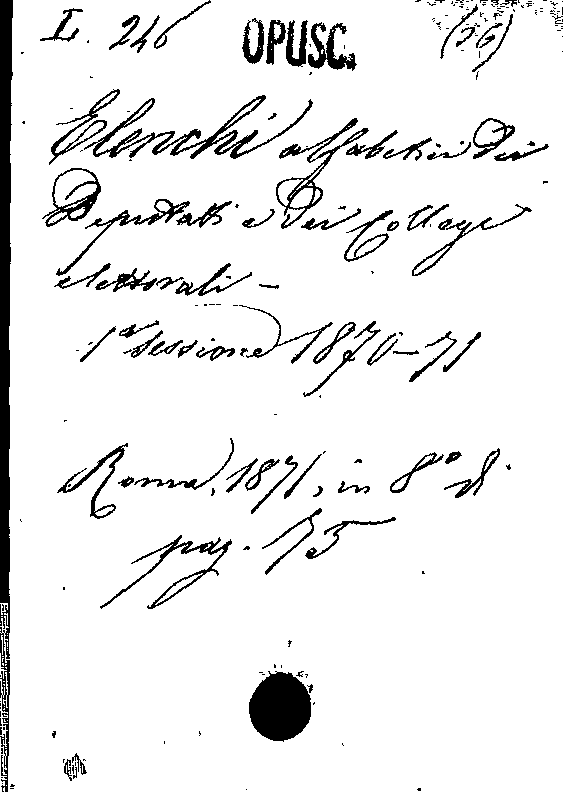 I. 246 OPUSC. (26)
Elenchi alfabetici dei
Deputati e dei Collegi
elettorali –
1ª sessione 1870–71
Roma, 1871, in 8° di
pag. 75